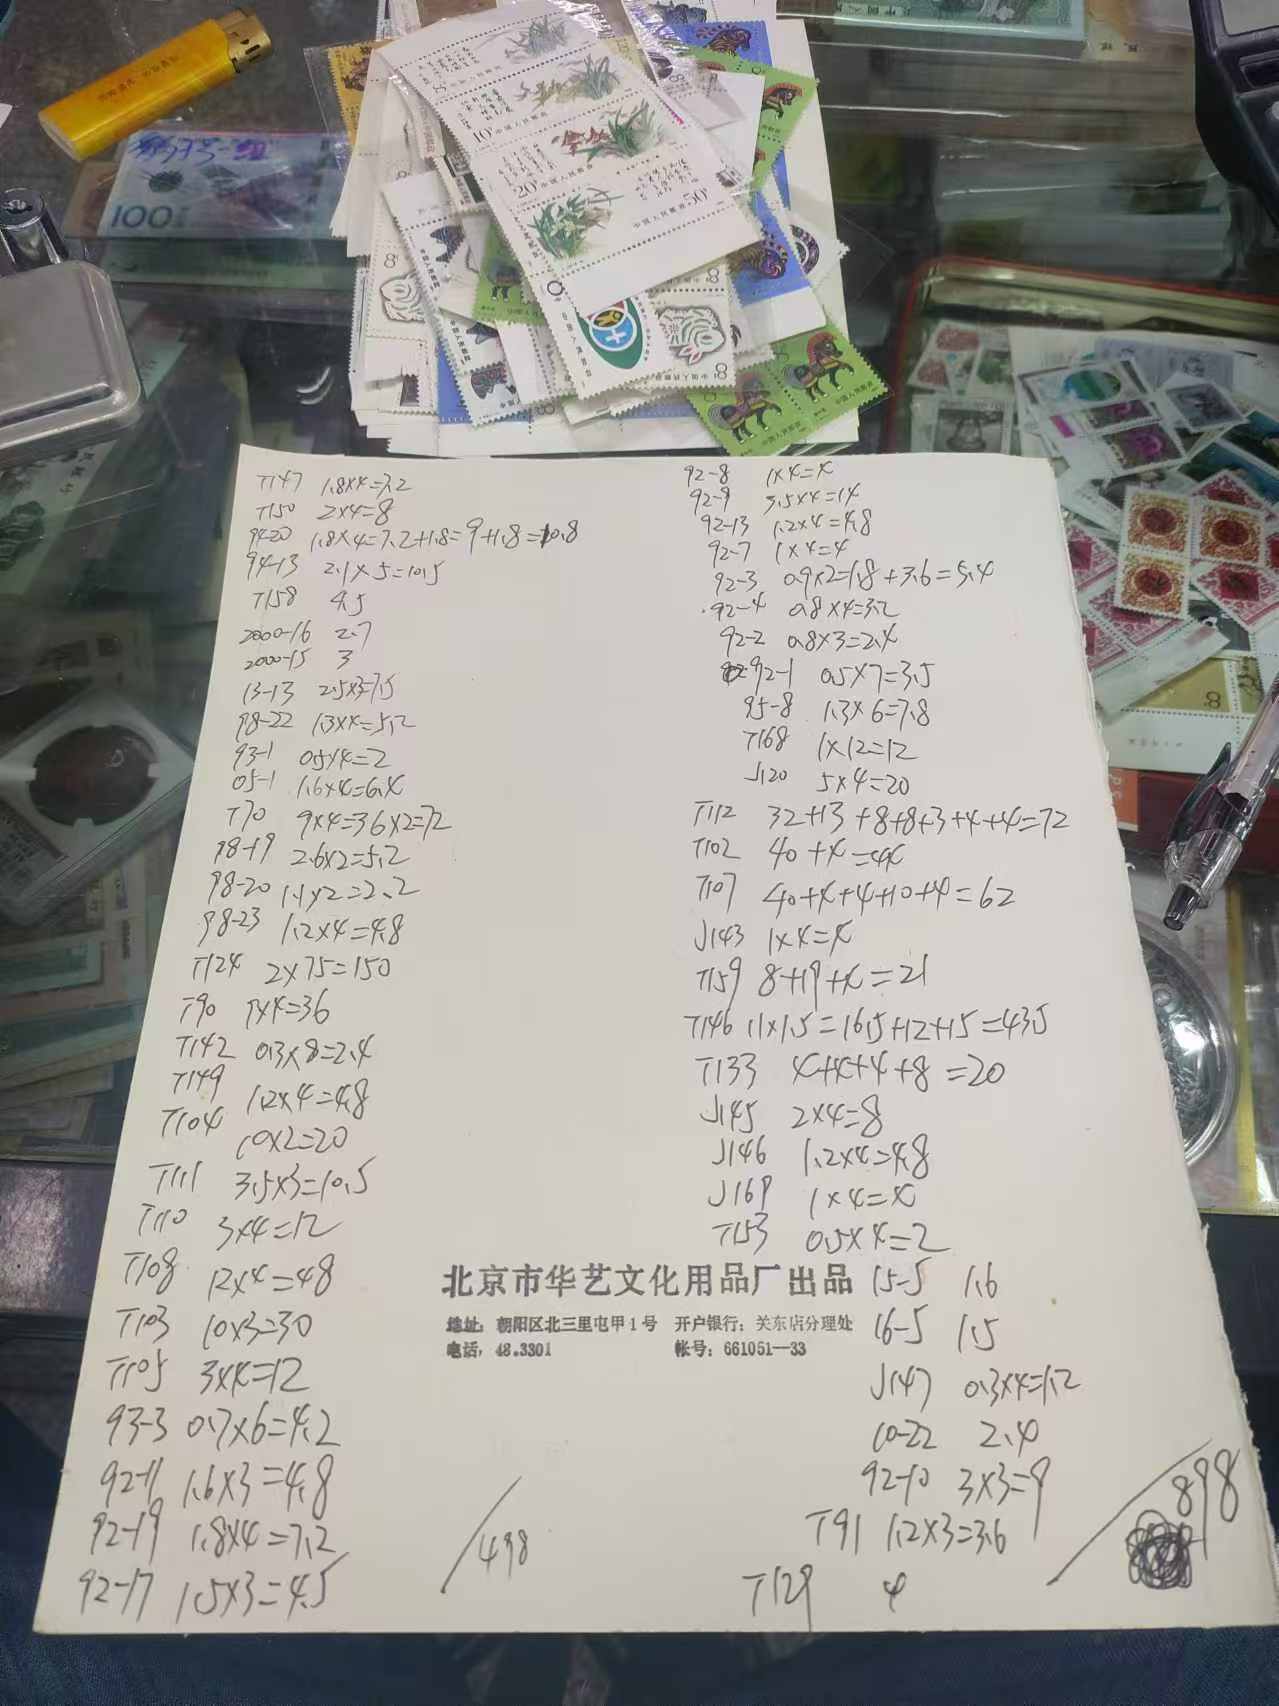 100
10分 中国人民邮政
20分 中国人民邮政
中国人民邮政 50分
T147 1.8×4=7.2
T150 2×4=8
94-20 1.8×4=7.2+1.8=9+1.8=10.8
94-13 2.1×5=10.5
T158 4.5
2000-16 2.7
2000-15 3
13-13 2.5×3=7.5
98-22 1.3×4=5.2
93-1 0.5×4=2
05-1 1.6×4=6.4
T70 9×4=36×2=72
98-19 2.6×2=5.2
98-20 1.1×2=2.2
98-23 1.2×4=4.8
T124 2×75=150
T90 9×4=36
T142 0.3×8=2.4
T149 1.2×4=4.8
T104 10×2=20
T111 3.5×3=10.5
T110 3×4=12
T108 12×4=48
T103 10×3=30
T105 3×4=12
93-3 0.7×6=4.2
92-11 1.6×3=4.8
92-19 1.8×4=7.2
92-17 1.5×3=4.5
498
92-8 1×4=4
92-9 3.5×4=14
92-13 1.2×4=4.8
92-7 1×4=4
92-3 0.9×2=1.8+3.6=5.4
92-4 0.8×4=3.2
92-2 0.8×3=2.4
92-1 0.5×7=3.5
95-8 1.3×6=7.8
T168 1×12=12
J120 5×4=20
T112 32+13+8+8+3+4+4=72
T102 40+4=44
T107 40+4+4+10+4=62
J143 1×4=4
T159 8+19+4=21
T146 11×1.5=16.5+12+15=43.5
T133 4+4+4+8=20
J145 2×4=8
J146 1.2×4=4.8
J169 1×4=4
T153 0.5×4=2
15-5 1.6
16-5 1.5
J147 0.3×4=1.2
10-22 2.4
92-10 3×3=9
T91 1.2×3=3.6
T129 4
898
北京市华艺文化用品厂出品
地址：朝阳区北三里屯甲1号 开户银行：关东店分理处
电话：48.3301 帐号：661051—33